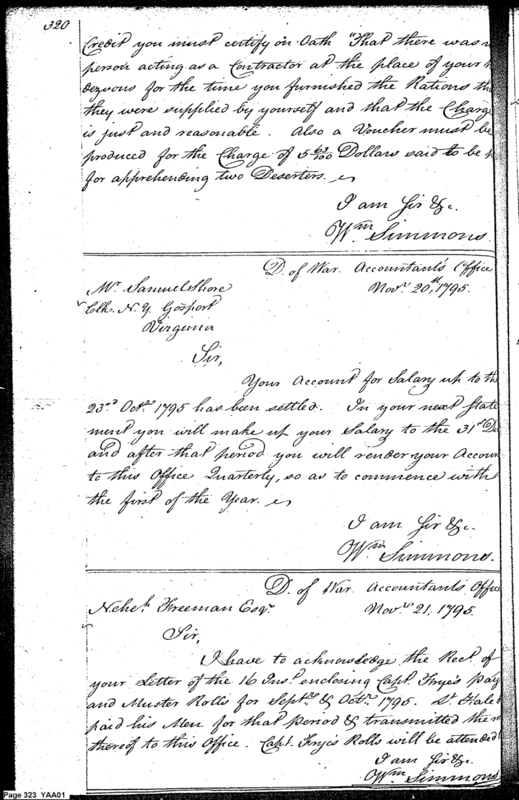 320
Credit you must certify on Oath "That there was n
person acting as a Contractor at the place of your
dezvous for the time you furnished the Rations th
they were supplied by yourself and that the Charge
is just and reasonable. Also a Voucher must be
produced for the Charge of 5 63/100 Dollars said to be p
for apprehending two Deserters.
I am Sir &c.
Wm Simmons
D. of War. Accountant's Office
Novr 20th, 1795.
Mr Samuel Shore
Clk. N. Y. Gosport
Virginia
Sir,
Your Account for Salary up to the
23d Octr 1795 has been settled. In your next State
ment you will make up your Salary to the 31st De
and after that period you will render your Accoun
to this Office Quarterly, so as to commence with
the first of the Year.
I am Sir &c.
Wm Simmons.
D. of War. Accountant's Office
Neheh Freeman Esqr
Novr 21, 1795.
Sir,
I have to acknowledge the Rect of
your Letter of the 16 Inst enclosing Capt. Frye's pay
and Muster Rolls for Septr & Octr 1795. Lt Hale
paid his Men for that Period & transmitted the
thereof to this Office. Capt. Frye's Rolls will be attended
I am Sir &c.
Wm Simmons
Page 323 YAA01